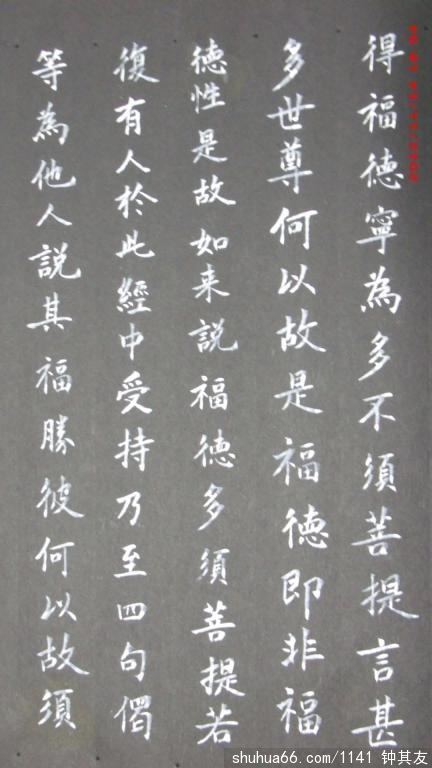 得福德寧為多不須菩提言甚
多世尊何以故是福德即非福
德性是故如来説福德多須菩提若
復有人於此經中受持乃至四句偈
等為他人説其福勝彼何以故須
shuhua66.com/1141 钟其友